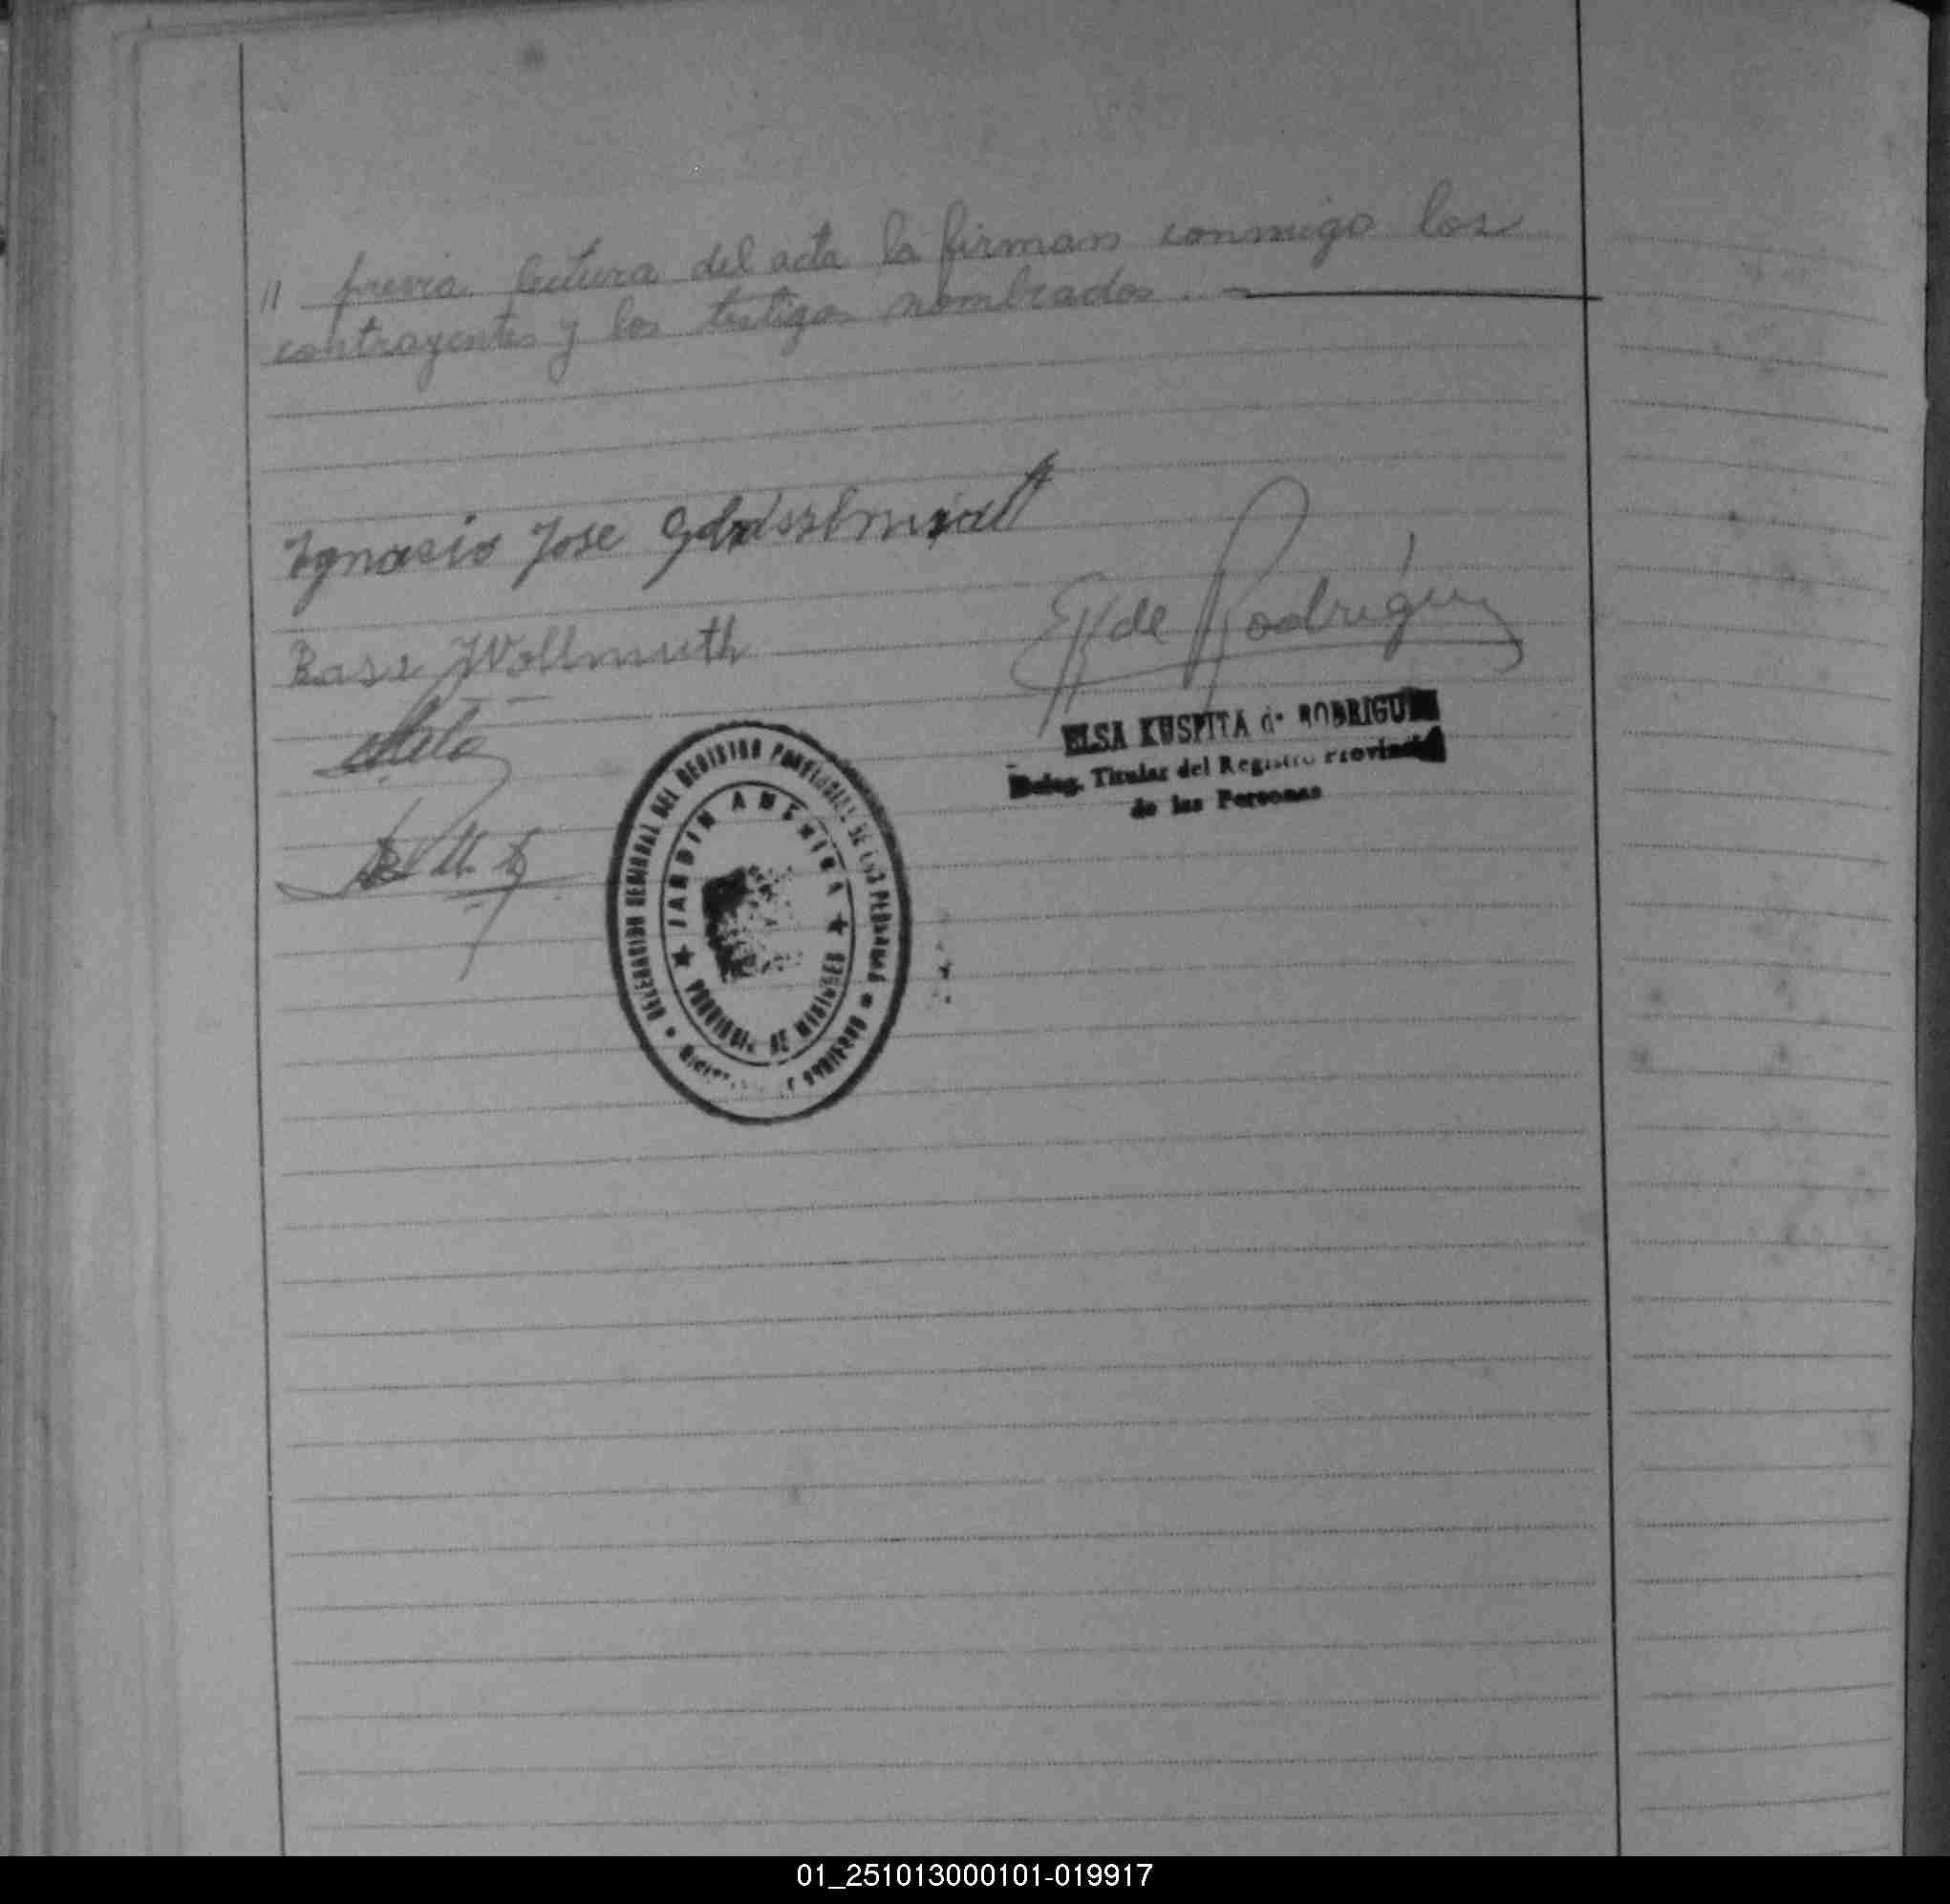 11 previa lectura del acta la firman conmigo los
contrayentes y los testigos nombrados. -
Ignacio Jose
Wollmuth
E K de Rodriguez
ELSA KUSPITA de RODRIGUEZ
Deleg. Titular del Registro Provincial
de las Personas
DELEGACION GENERAL DEL REGISTRO PROVINCIAL DE LAS PERSONAS
JARDIN AMERICA
PROVINCIA DE MISIONES
01_251013000101-019917